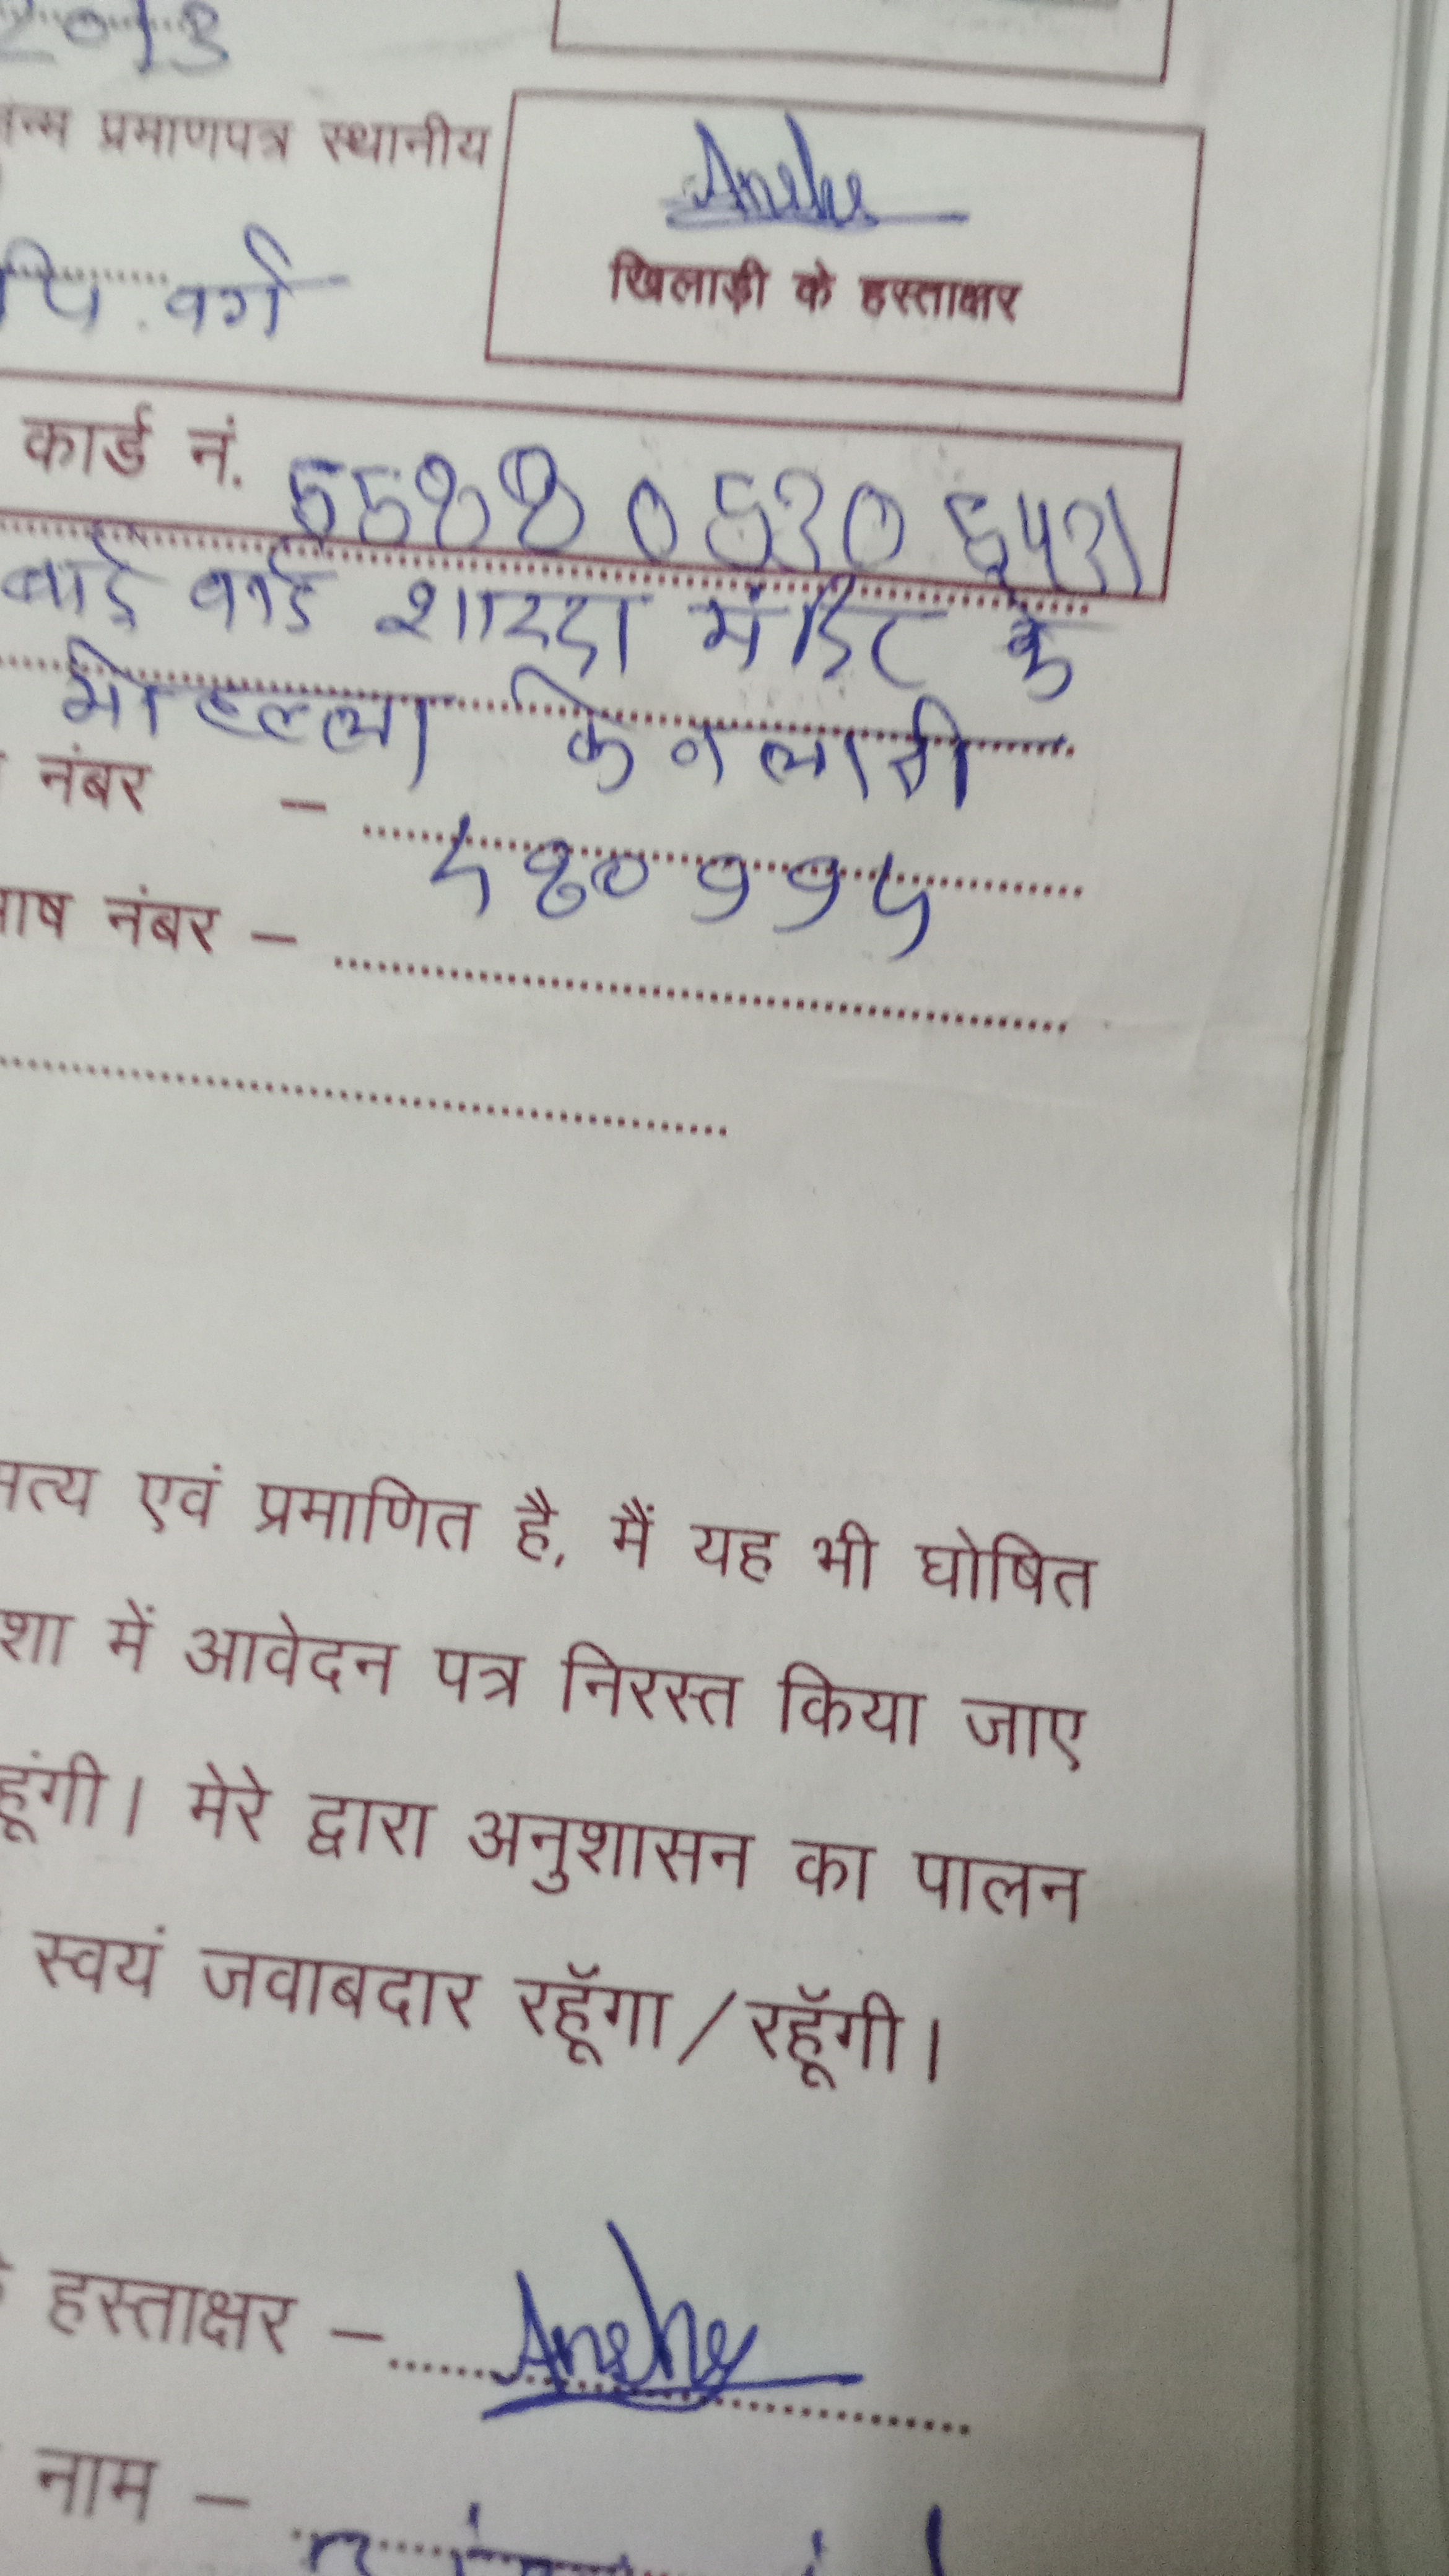 2013
जन्म प्रमाणपत्र स्थानीय
Anshu
खिलाड़ी के हस्ताक्षर
वर्ग
कार्ड नं. 5588 0530
वार्ड शारदा मंदिर के
मोहल्ला केवलारी
नंबर –
480995
नंबर –
सत्य एवं प्रमाणित है, मैं यह भी घोषित
में आवेदन पत्र निरस्त किया जाए
मेरे द्वारा अनुशासन का पालन
स्वयं जवाबदार रहूँगा/रहूँगी।
हस्ताक्षर –
नाम –